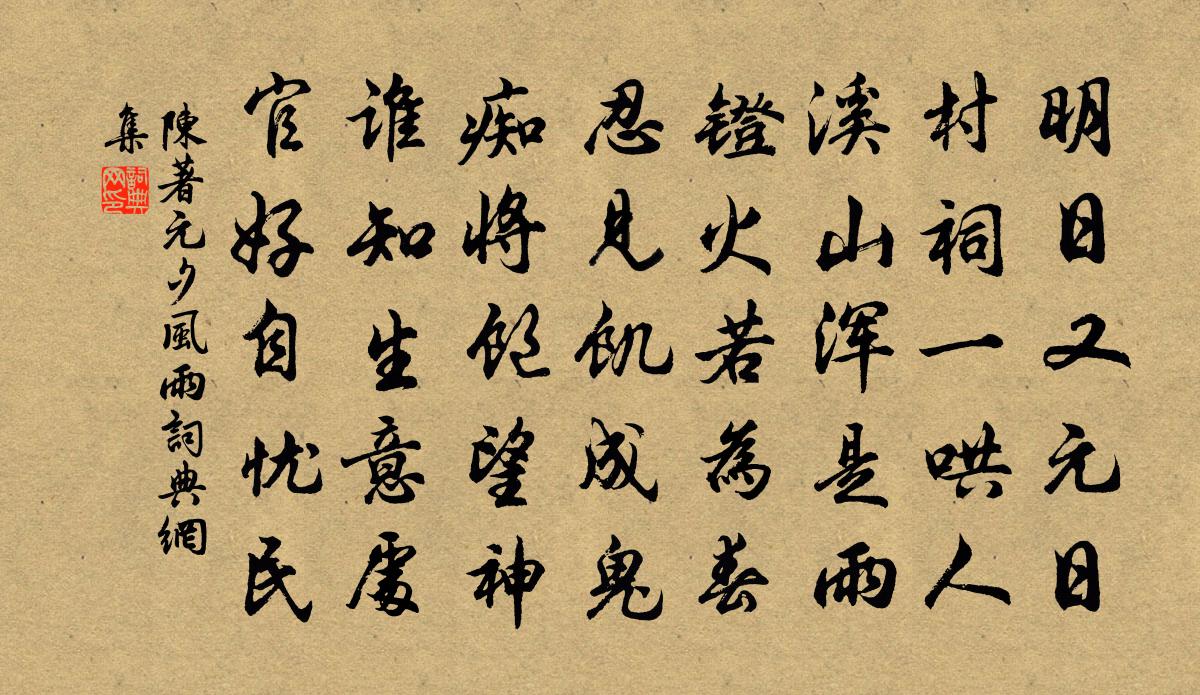 明日又元日
村祠一哄人
溪山浑是雨
镫火若為春
忍見飢成鬼
痴將飽望神
谁知生意處
官好自忧民
陳著元夕風雨詞典網
集
詞典
网印